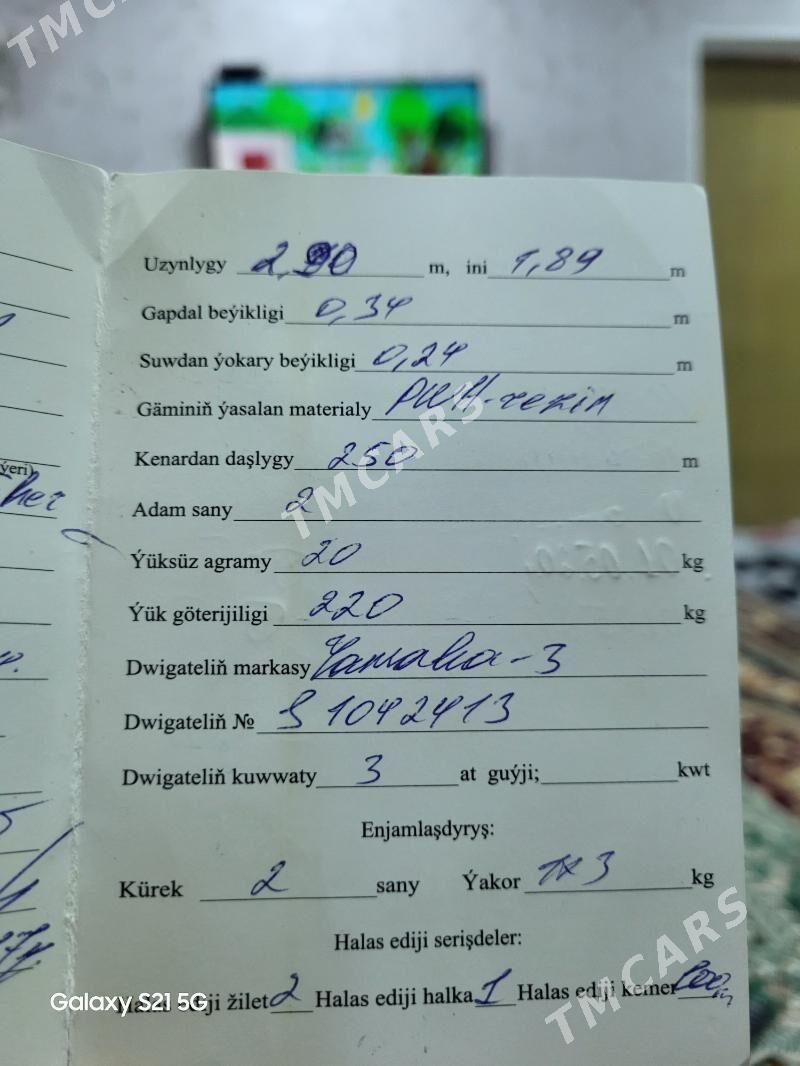 TMCARS
Uzynlygy 2,90 m, ini 1,89 m
Gapdal beýikligi 0,34 m
Suwdan ýokary beýikligi 0,24 m
Gäminiň ýasalan materialy
Kenardan daşlygy 250 m
TMCARS
Adam sany 2
Ýüksüz agramy 20 kg
Ýük göterijiligi 220 kg
Dwigateliň markasy Yamaha-3
Dwigateliň № S 1042413
Dwigateliň kuwwaty 3 at guýji; kwt
Enjamlaşdyryş:
Kürek 2 sany Ýakor 1x3 kg
Halas ediji serişdeler:
TMCARS
Halas ediji žilet 2 Halas ediji halka 1 Halas ediji kemer
Galaxy S21 5G
ýeri)